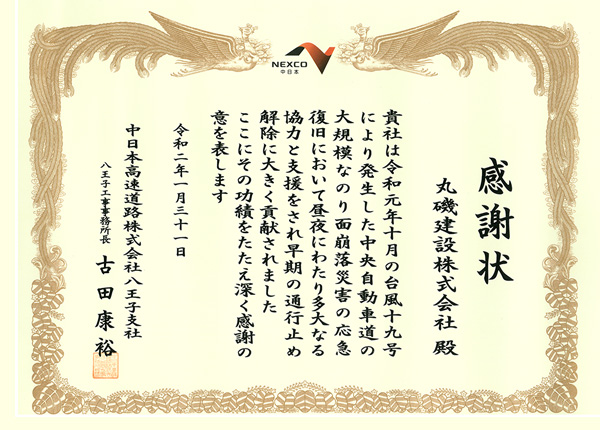 NEXCO
中日本
感謝状
丸磯建設株式会社 殿
貴社は令和元年十月の台風十九号
により発生した中央自動車道の
大規模なのり面崩落災害の応急
復旧において昼夜にわたり多大なる
協力と支援をされ早期の通行止め
解除に大きく貢献されました
ここにその功績をたたえ深く感謝の
意を表します
令和二年一月三十一日
中日本高速道路株式会社八王子支社
八王子工事事務所長 古田康裕